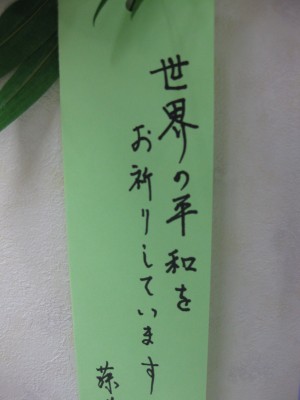 世界の平和を
お祈りしています